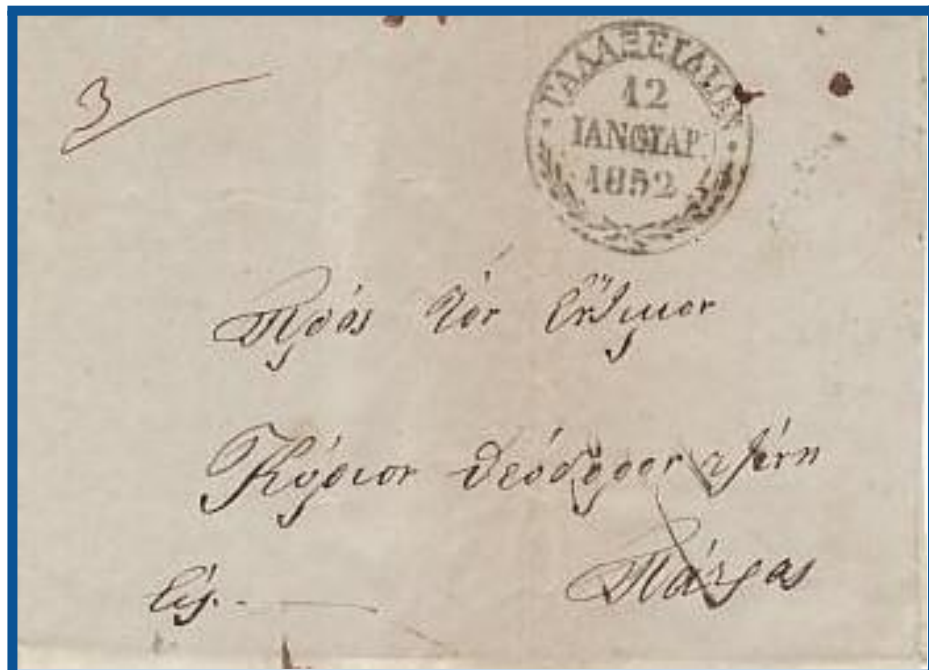 3
ΓΑΛΑΞΕΙΔΙΟΝ
12
ΙΑΝΟΥΑΡ.
1852
Πρός τόν ἔντιμον
Κύριον Θεόδορον
Εἰς Πάτρας